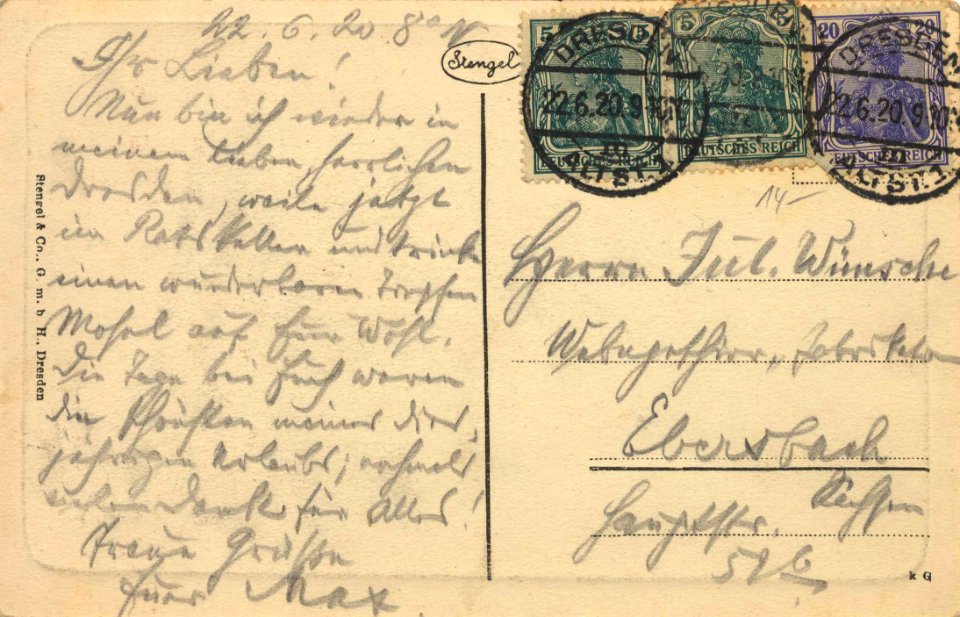 22.6.20 8°° N
Ihr Lieben!
Nun bin ich wieder in
meinem lieben, herrlichen
Dresden, weile jetzt
im Ratskeller und trinke
einen wunderbaren Tropfen
Mosel auf Euer Wohl.
Die Tage bei Euch waren
die schönsten meines dies-
jährigen Urlaubs; nochmals
vielen Dank für Alles!
Treue Grüße
Euer Max
Stengel & Co., G. m. b. H., Dresden
Stengel
5 5 20 20
DRESDEN
22.6.20.9
ALTST. 1
DEUTSCHES REICH
DEUTSCHES REICH
DRESDEN
22.6.20.9
ALTST. 1
DEUTSCHES REICH
14-
Herrn Jul. Wünsche
Ebersbach
Sachsen
Hauptstr.
k G